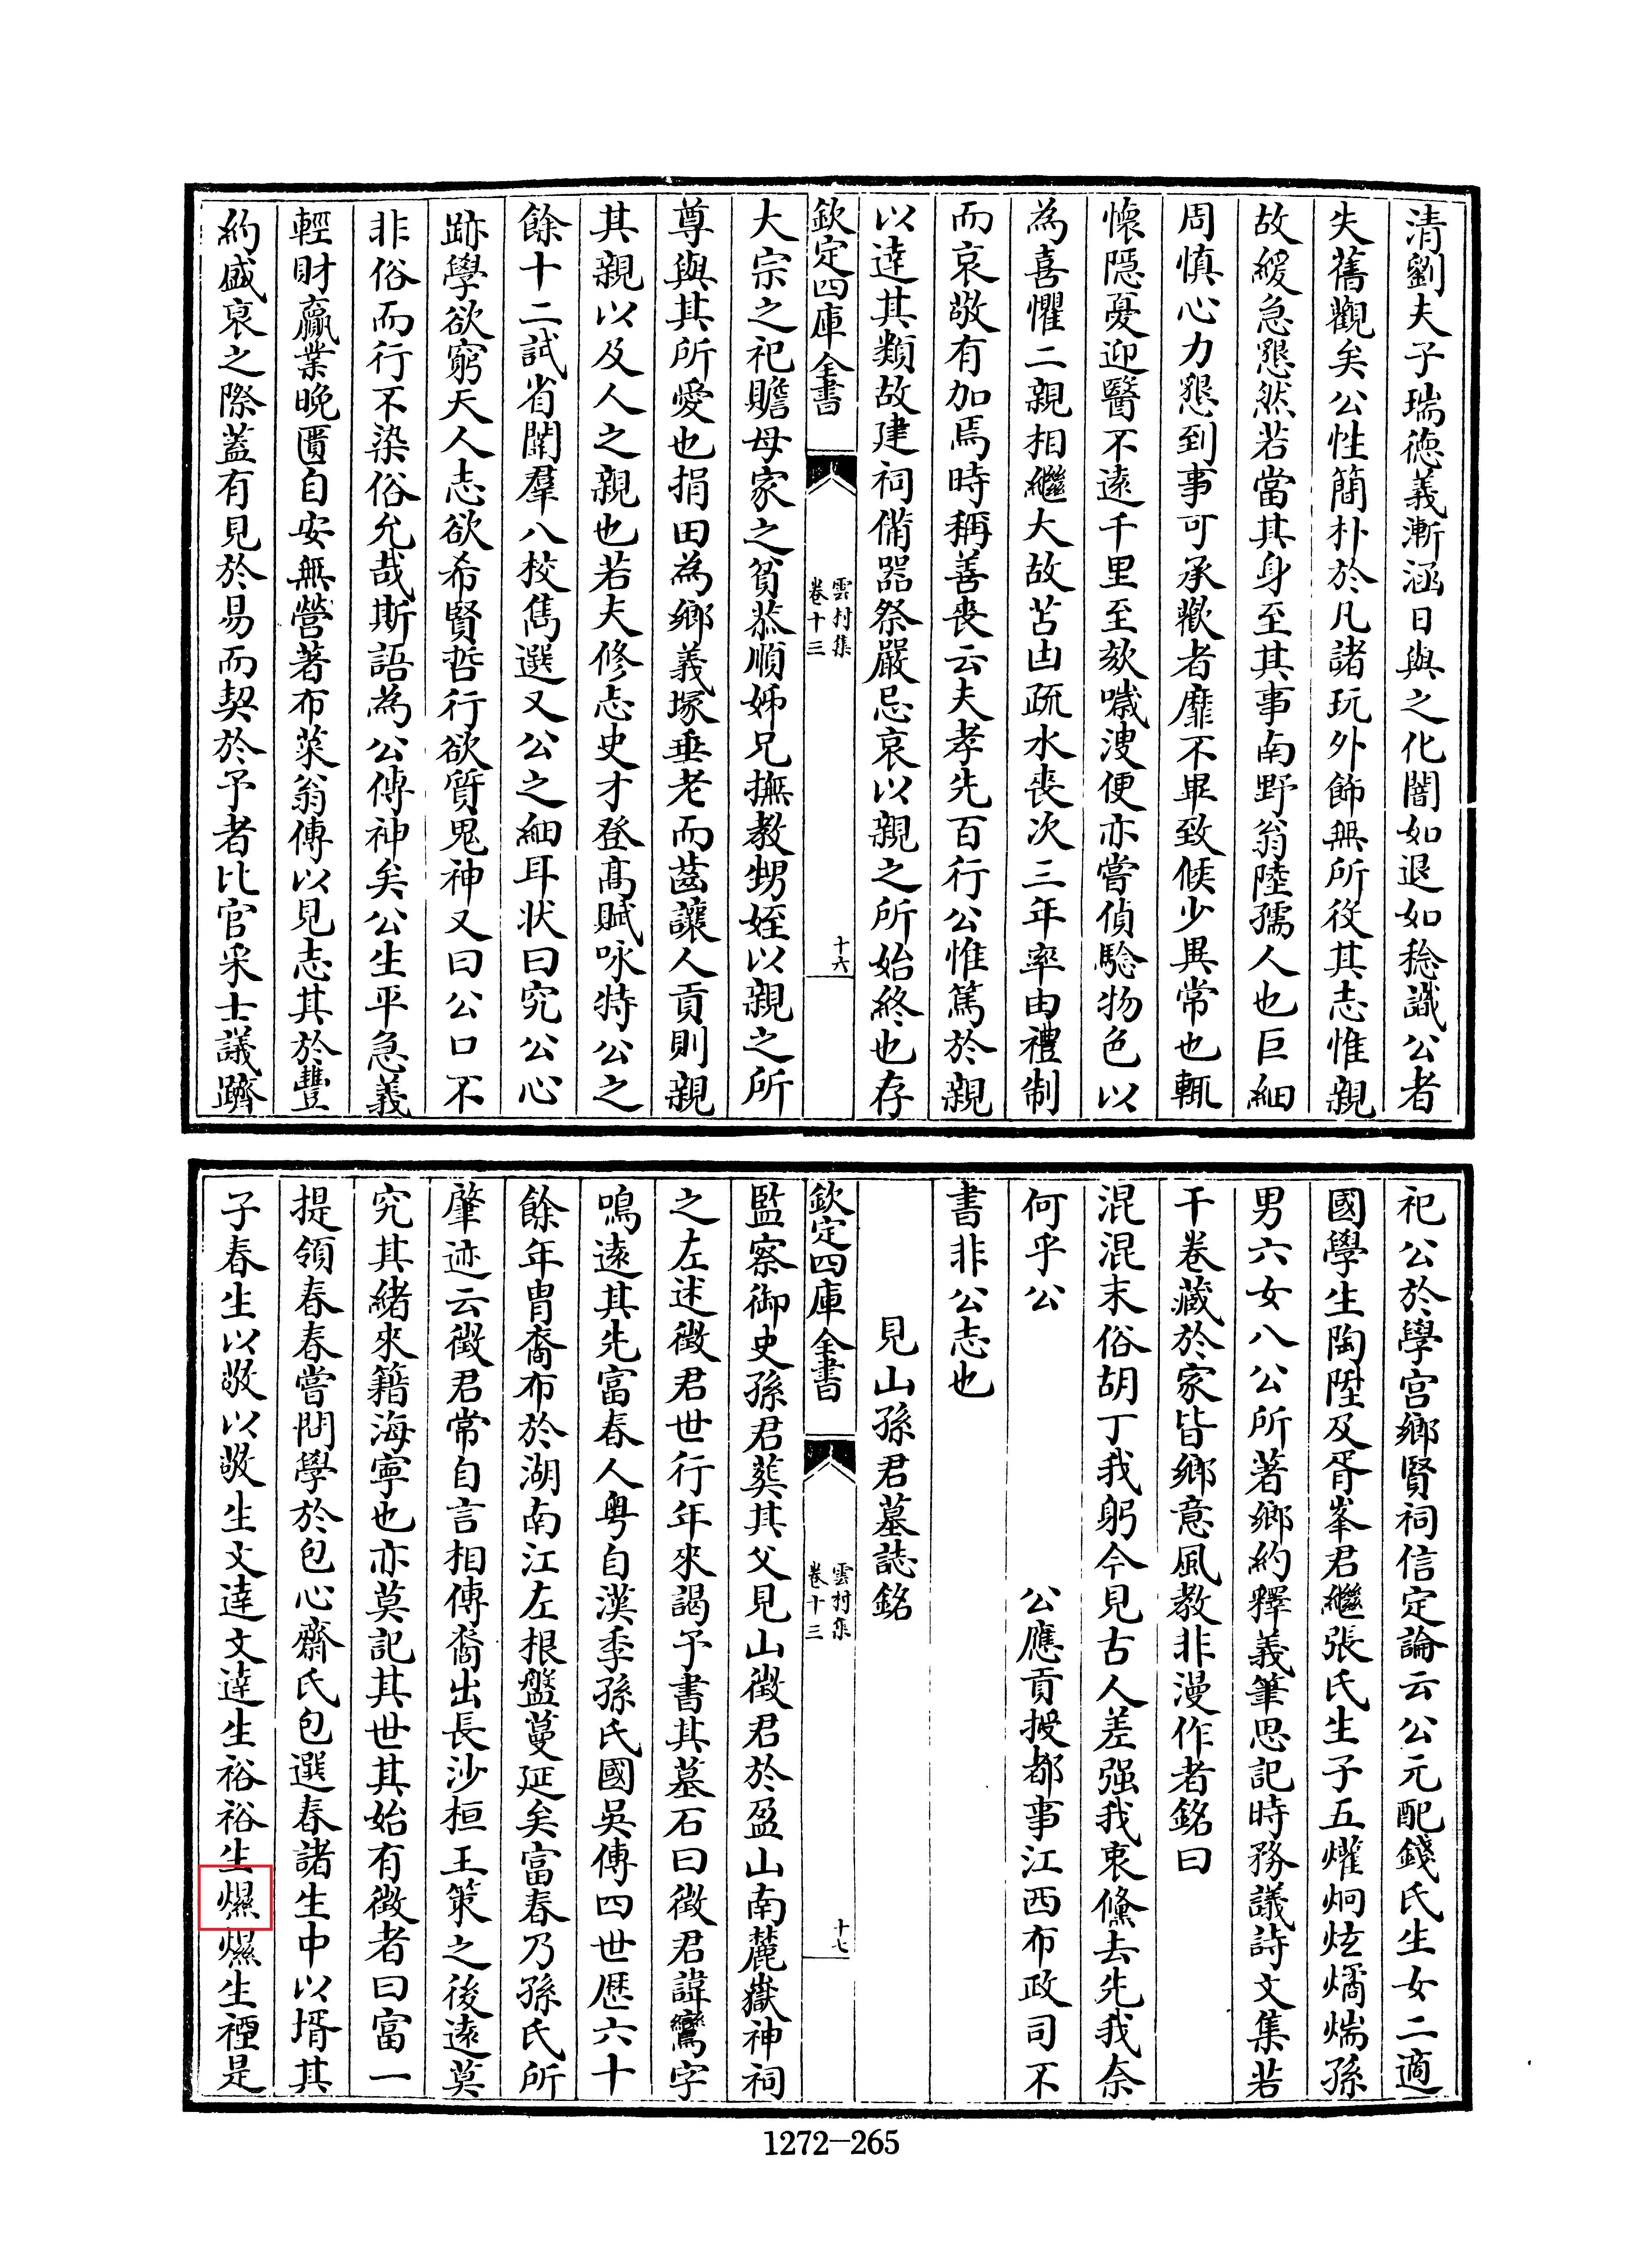 清劉夫子瑞德義漸涵日與之化闇如退如稔識公者
失舊觀矣公性簡朴於凡諸玩外飾無所役其志惟親
故緩急懇然若當其身至其事南野翁陸孺人也巨細
周慎心力懇到事可承歡者靡不畢致候少異常也輒
懷隱憂迎醫不遠千里至欬噦溲便亦嘗偵驗物色以
為喜懼二親相繼大故苫凷疏水喪次三年率由禮制
而哀敬有加焉時稱善喪云夫孝先百行公惟篤於親
以逹其類故建祠備器祭嚴忌哀以親之所始終也存
欽定四庫全書
雲村集
卷十三
十六
大宗之祀贍母家之貧恭順姊兄撫教甥姪以親之所
尊與其所愛也捐田為鄉義塚垂老而齒讓人貢則親
其親以及人之親也若夫修志史才登高賦咏特公之
餘十二試省闈羣八校雋選又公之細耳狀曰究公心
跡學欲窮天人志欲希賢哲行欲質鬼神又曰公口不
非俗而行不染俗允哉斯語為公傳神矣公生平急義
輕財贏業晚匱自安無營著布菜翁傳以見志其於豐
約盛衰之際蓋有見於易而契於予者比官采士議躋
祀公於學宫鄉賢祠信定論云公元配錢氏生女二適
國學生陶陞及胥峯君繼張氏生子五燿炯炫燏煓孫
男六女八公所著鄉約釋義筆思記時務議詩文集若
干卷藏於家皆鄉意風教非漫作者銘曰
混混末俗胡丁我躬今見古人差强我衷儵去先我奈
何乎公 公應貢授都事江西布政司不
書非公志也
見山孫君墓誌銘
欽定四庫全書
雲村集
卷十三
十七
監察御史孫君葬其父見山徵君於盈山南麓嶽神祠
之左述徵君世行年來謁予書其墓石曰徵君諱鸞字
鳴遠其先富春人粤自漢季孫氏國吳傳四世歷六十
餘年冑裔布於湖南江左根盤蔓延矣富春乃孫氏所
肇迹云徵君常自言相傳裔出長沙桓王策之後遠莫
究其緒來籍海寧也亦莫記其世其始有徵者曰富一
提領春春嘗問學於包心齋氏包選春諸生中以壻其
子春生以敬以敬生文逹文逹生裕裕生爃爃生禋是
1272—265